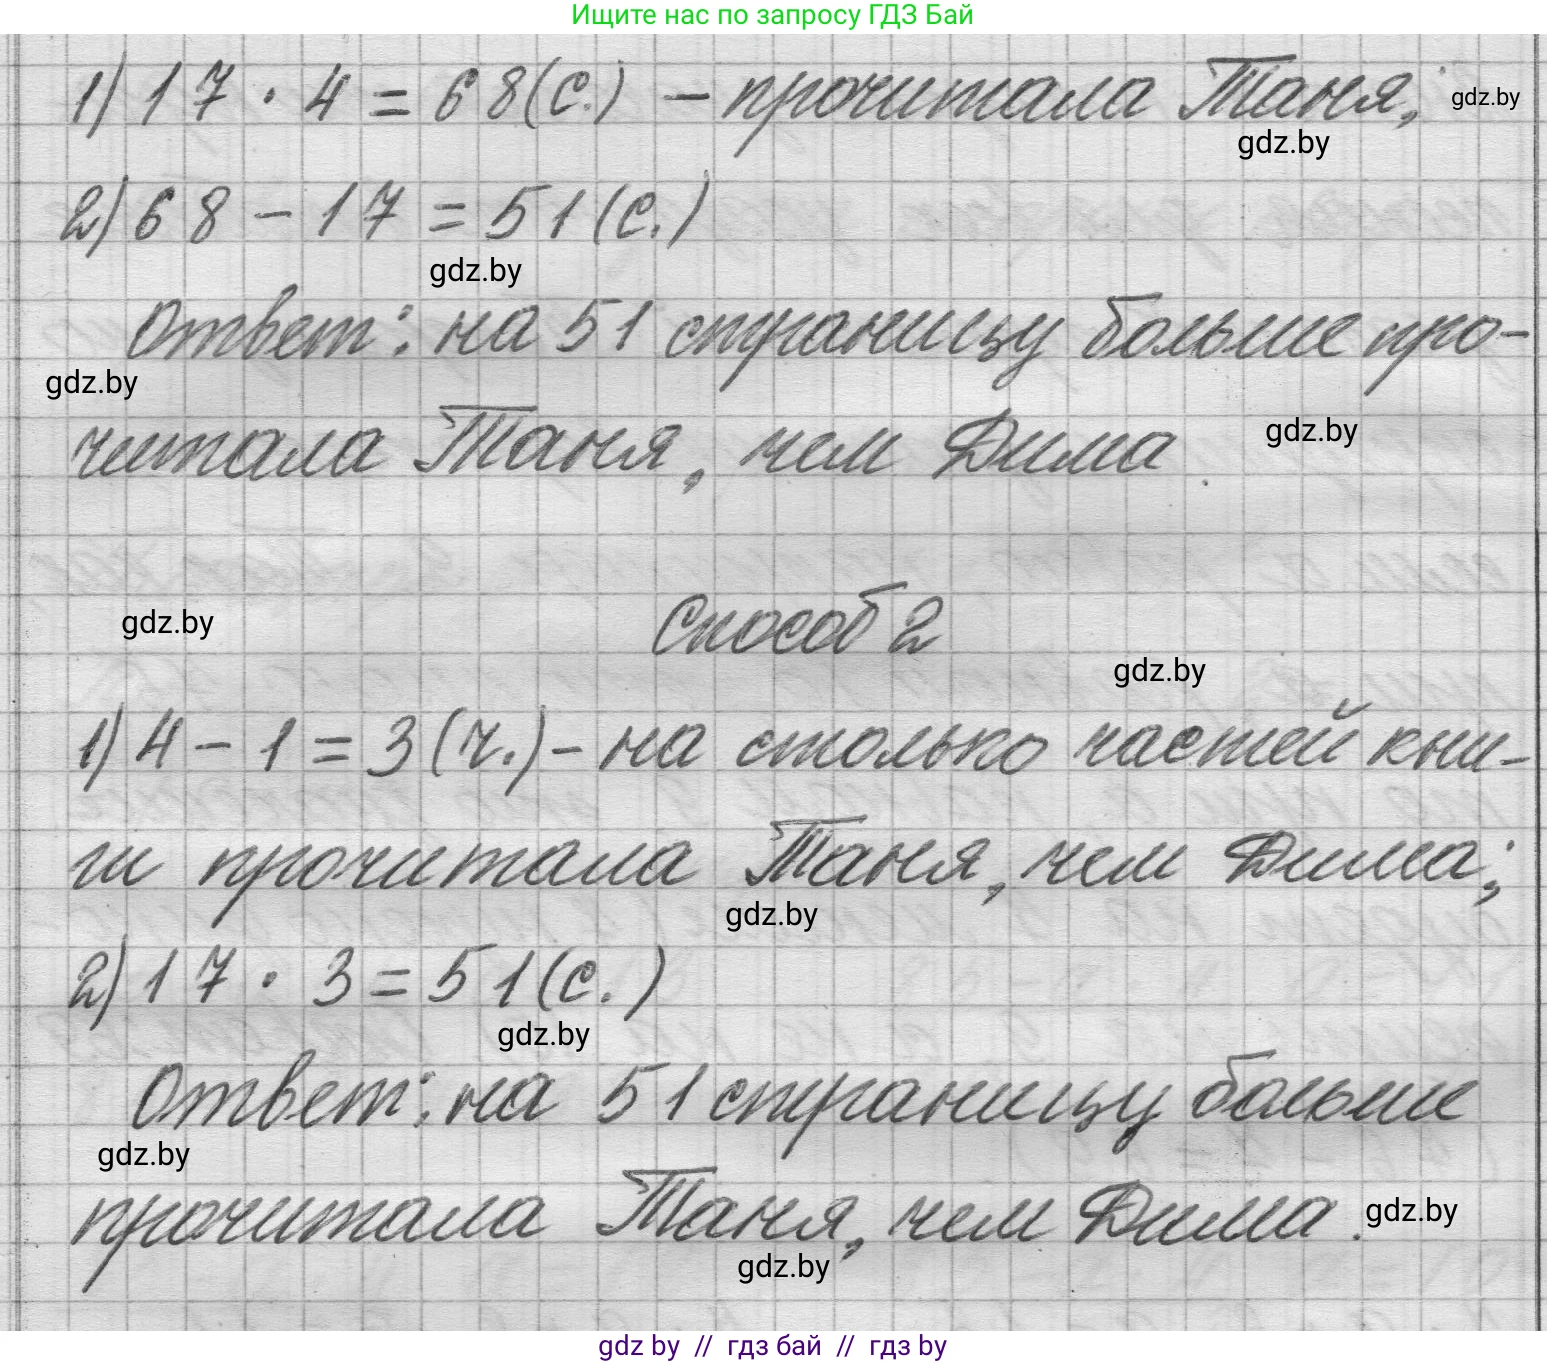 Ищите нас по запросу ГДЗ Бай
1) 17 · 4 = 68 (с.) – прочитала Таня;
gdz.by
gdz.by
2) 68 – 17 = 51 (с.)
gdz.by
Ответ: на 51 страницу больше про-
gdz.by
читала Таня, чем Дима.
gdz.by
Способ 2
gdz.by
gdz.by
1) 4 – 1 = 3 (ч.) – на столько частей кни-
ги прочитала Таня, чем Дима;
gdz.by
2) 17 · 3 = 51 (с.)
gdz.by
Ответ: на 51 страницу больше
gdz.by
прочитала Таня, чем Дима.
gdz.by
gdz.by
gdz by // гдз бай // гдз by